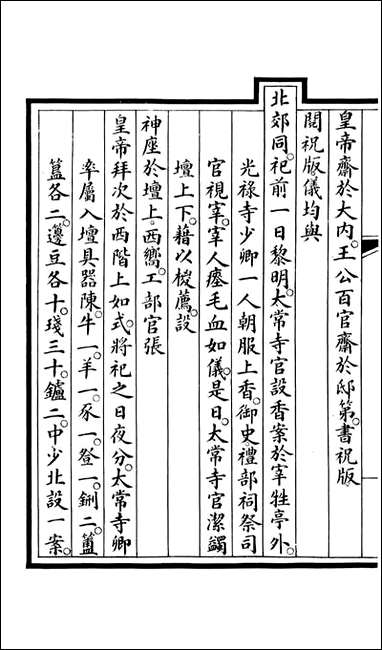 皇帝齋於大内。王公百官齋於邸第。書祝版
閱祝版儀均與
北郊同。祀前一日黎明。太常寺官設香案於宰牲亭外。
光祿寺少卿一人朝服上香。御史禮部祠祭司
官視宰。宰人瘞毛血如儀。是日。太常寺官潔蠲
壇上下。藉以椶薦。設
神座於壇上。西嚮。工部官張
皇帝拜次於西階上如式。將祀之日夜分。太常寺卿
率屬入壇具器陳。牛一。羊一。豕一。登一。鉶二。簠
簋各二。籩豆各十。琖三十。鑪二。中少北設一案。